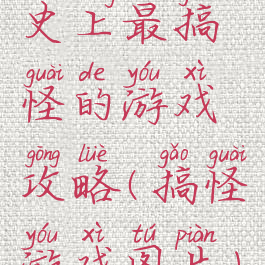 史上最搞
guài de yóu xì
怪的游戏
gōng lüè gǎo guài
攻略(搞怪
yóu xì tú piàn
游戏图片)